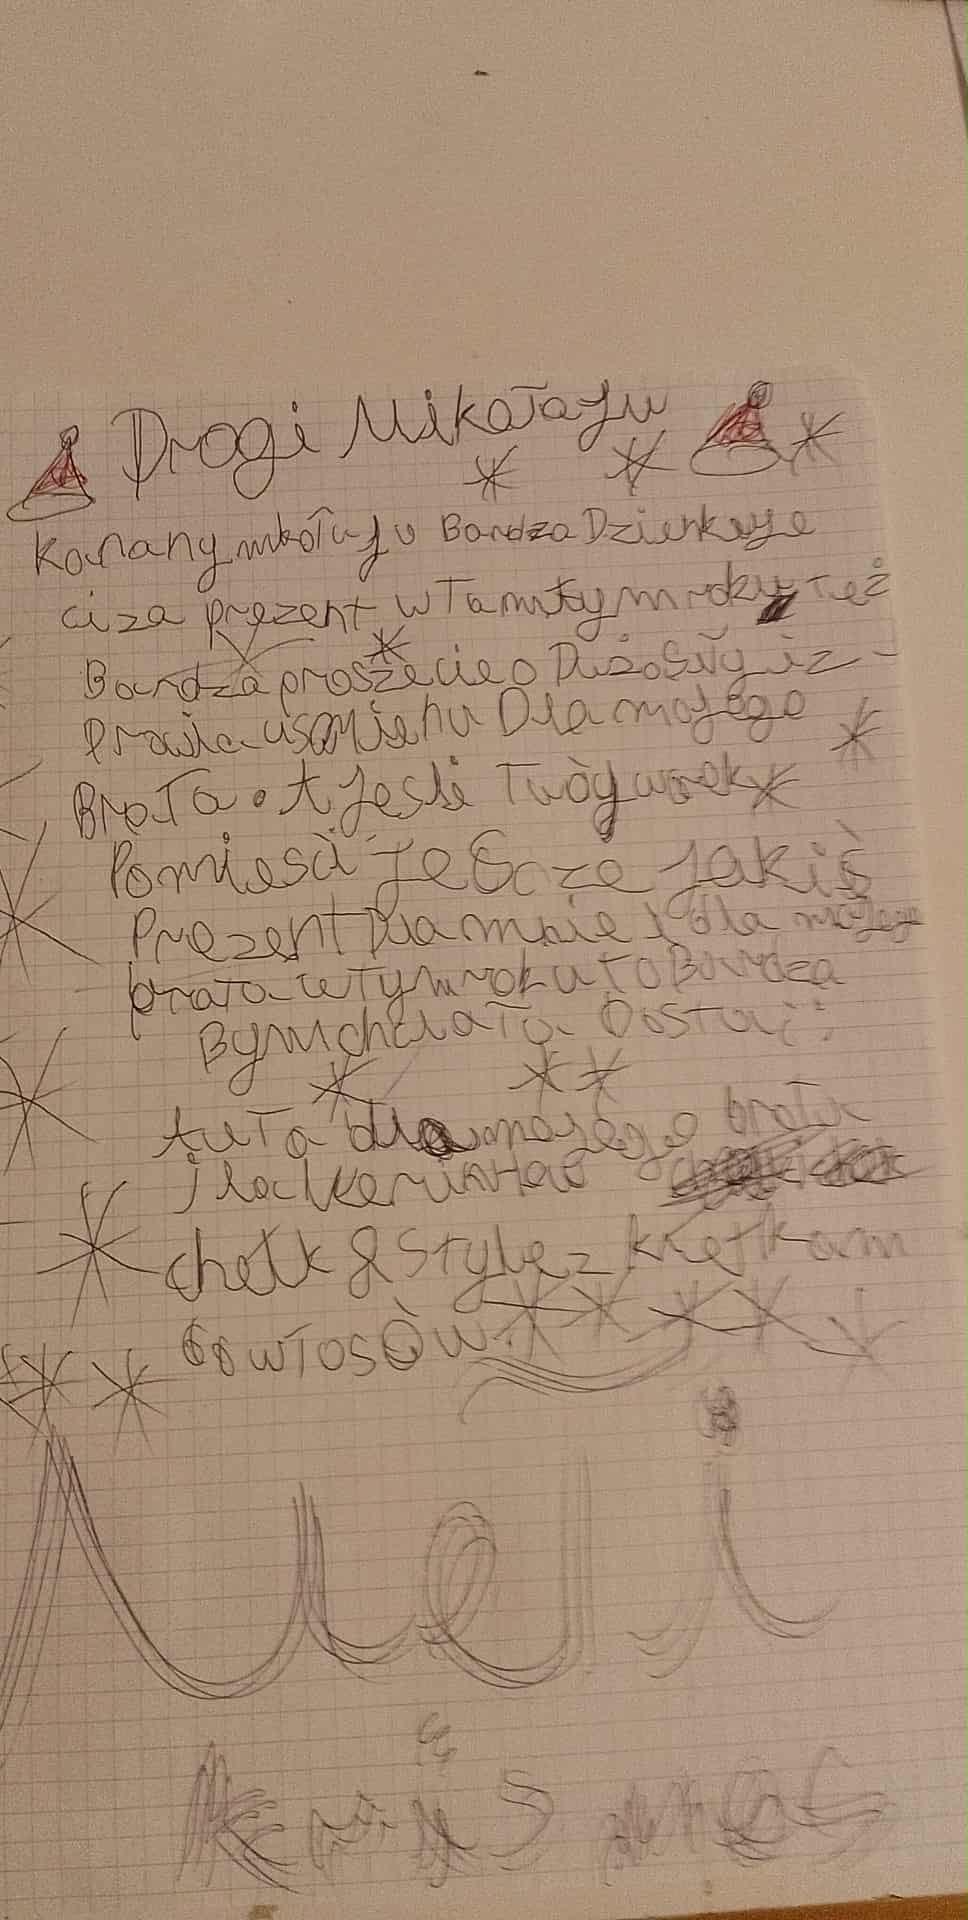 Drogi Mikołaju
Kohany mikołaju Bardza Dzienkuje
ci za prezent w Tamtym roku też
Bardza prosze cie o Dużo siły i z-
Drowia usmiehu Dla mojego
BraTa. A jesli Twój worek
Pomiesci jeScze jakiś
Prezent Dla mnie i dla mojego
brata w tym roku To Bardza
Bym chciała Dostać:
AuTa dla mojego brata
i lalke
chelk & Style z kretkam
do włosów.